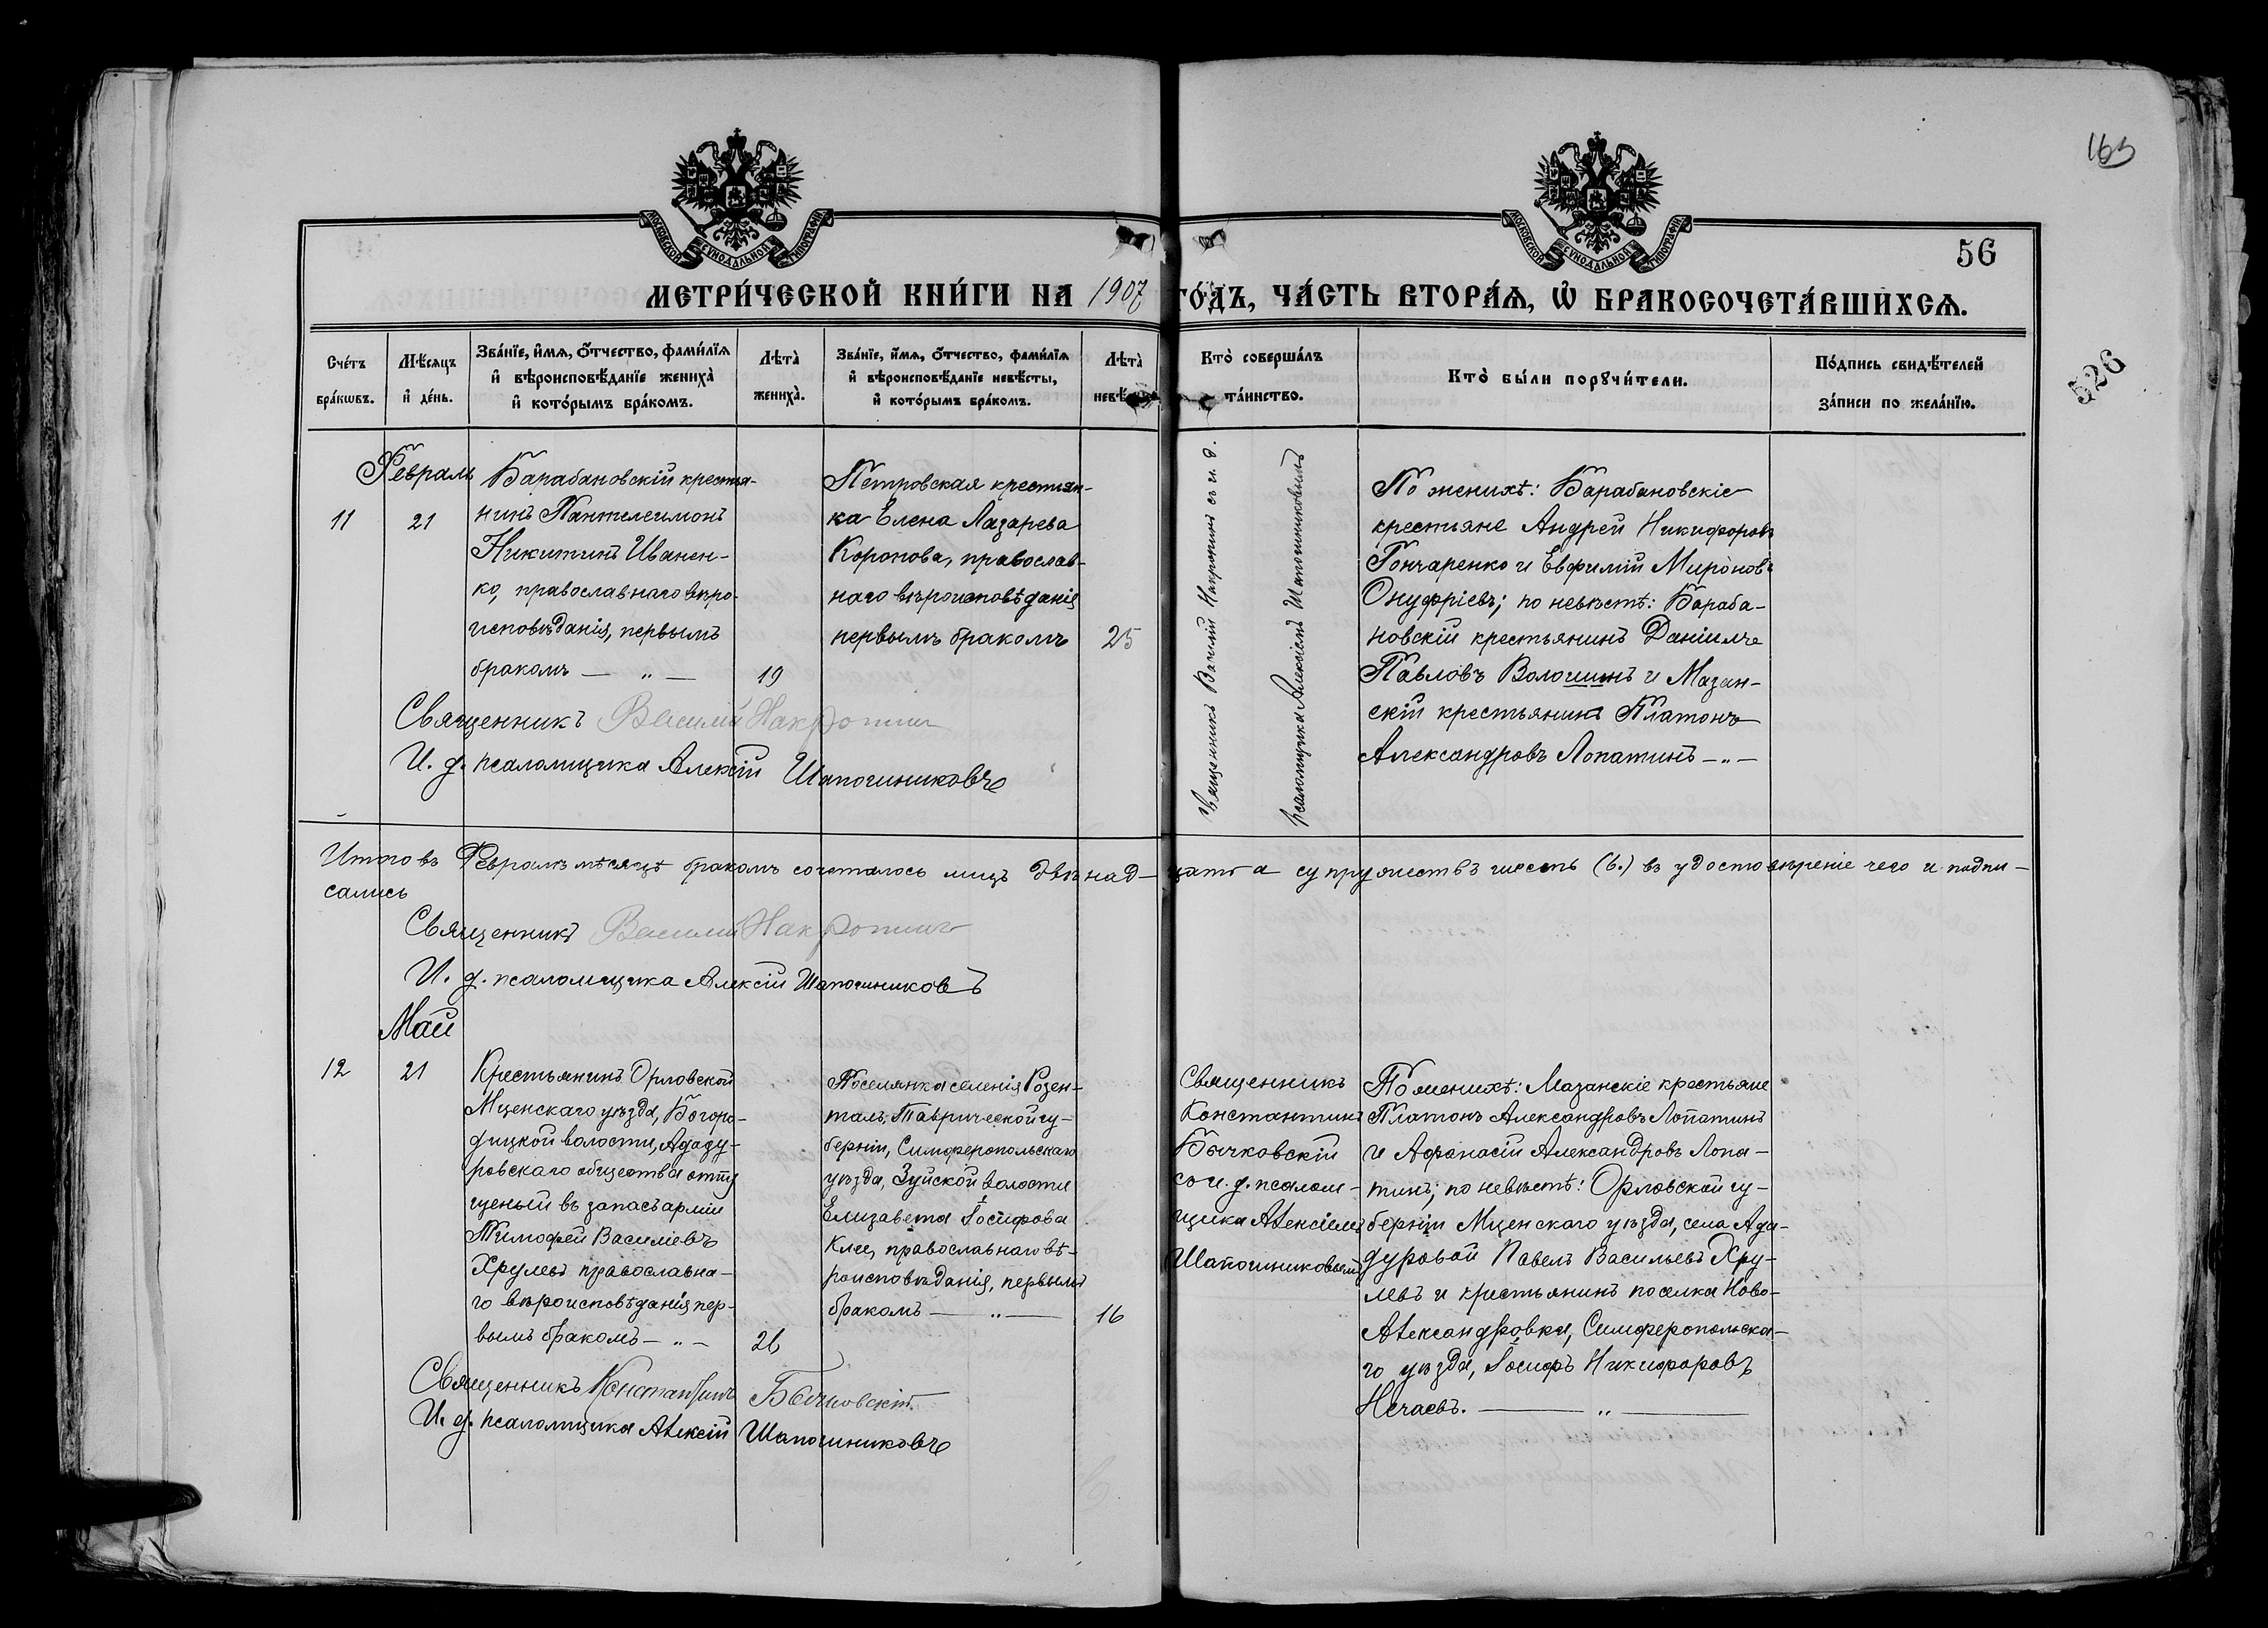 163
МОСКОВСКОЙ СѴНОДАЛЬНОЙ ТИПОГРАФІИ
МОСКОВСКОЙ СѴНОДАЛЬНОЙ ТИПОГРАФІИ
56
МЕТРИ́ЧЕСКОЙ КНИ́ГИ НА 1907 ГО́ДЪ, ЧА́СТЬ ВТОРА́Я, Ѡ БРАКОСОЧЕТА́ВШИХСЯ.
526
Сче́тъ
бра́кѡвъ.
Мѣ́сяцъ
и҆ де́нь.
Зва́нїе, и҆́мѧ, ѻ҆́тчество, фами́лїѧ
и҆ вѣроисповѣ́данїе жениха̀
и҆ кото́рымъ бра́комъ.
Лѣта̀
жениха̀.
Зва́нїе, и҆́мѧ, ѻ҆́тчество, фами́лїѧ
и҆ вѣроисповѣ́данїе невѣ́сты,
и҆ кото́рымъ бра́комъ.
Лѣта̀
невѣ́
Кто̀ соверша́лъ
та́инство.
Кто̀ бы́ли порꙋчи́тели.
По́дпись свидѣ́телей
за́писи по жела́нїю.
Февраль
11
21
Барабановскій крестья-
нинъ Пантелеимонъ
Никитинъ Иванен-
ко, православнаго вѣро-
исповѣданія, первымъ
бракомъ — „ —
19
Петровская крестьян-
ка Елена Лазарева
Коропова, православ-
наго вѣроисповѣданія
первымъ бракомъ
25
Священникъ Василій Накропинъ съ и. д.
псаломщика Алексіемъ Шапошниковымъ
По женихѣ: Барабановскіе
крестьяне Андрей Никифоровъ
Гончаренко и Евфимій Мироновъ
Онуфріевъ; по невѣстѣ: Бараба-
новскій крестьянинъ Даніилъ
Павловъ Волошинъ и Мазан-
скій крестьянинъ Платонъ
Александровъ Лопатинъ — „ —
Священникъ Василій Накропин
И. д. псаломщика Алексій Шапошниковъ
Итого въ Февралѣ мѣсяцѣ бракомъ сочеталось лицъ двѣнад-цать а супружествъ шесть (6.) въ удостовѣреніе чего и подпи-
сались
Священникъ Василій Накропин
И. д. псаломщика Алексій Шапошниковъ
Май
12
21
Крестьянинъ Орловской
Мценскаго уѣзда, Богоро-
дицкой волости, Ададу-
ровскаго общества отпу
щеный въ запасъ арміи
Тимофей Василіевъ
Хрулевъ православна-
го вѣроисповѣданія пер-
вымъ бракомъ — „ —
26
Поселянка селенія Розен-
талъ, Таврической гу-
берніи, Симферопольскаго
уѣзда, Зуйской волости
Елизавета Іосифова
Клее, православнаго вѣ-
роисповѣданія, первымъ
бракомъ — „ —
16
Священникъ
Константинъ
Бычковскій
съ и. д. псалом-
щика Алексіемъ
Шапошниковымъ
По женихѣ: Мазанскіе крестьяне
Платонъ Александровъ Лопатинъ
и Афанасій Александровъ Лопа-
тинъ; по невѣстѣ: Орловской гу-
берніи Мценскаго уѣзда, села Ада-
дуровой Павелъ Васильевъ Хру-
левъ и крестьянинъ поселка Ново-
Александровки, Симферопольска-
го уѣзда, Іосифъ Никифоровъ
Нечаевъ. — „ —
Священникъ Константинъ Бычковскій.
И. д. псаломщика Алексій Шапошниковъ